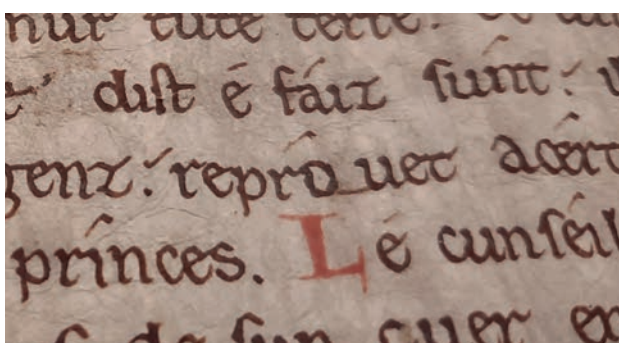 nur tute terre.
dist é fáiz sunt:
genz: repróuet acért
prínces. Lé cunséil
s de sun cuer